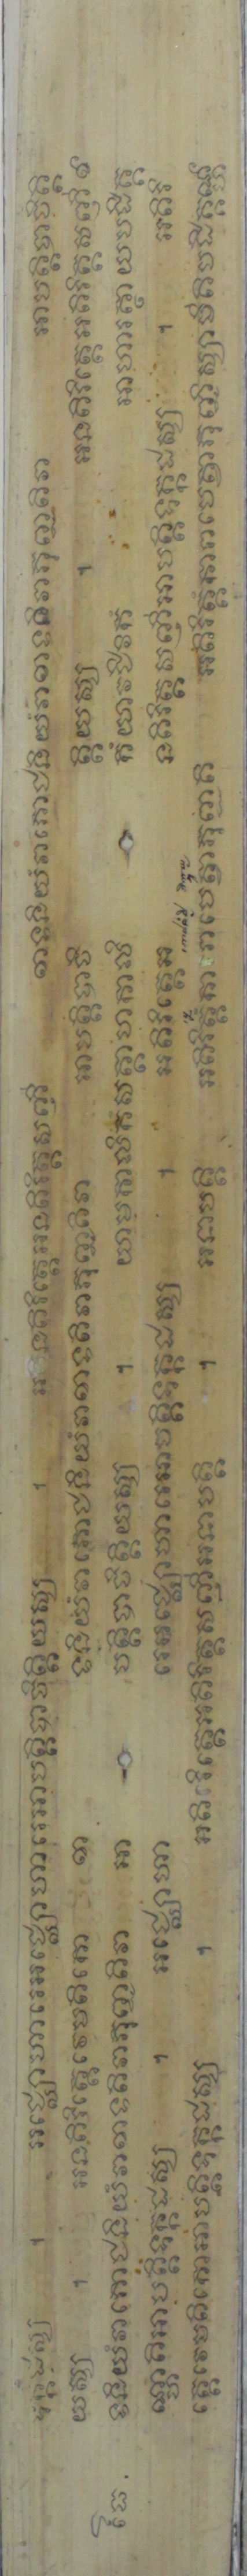 ទុក្កដស្ស ។ អជ្ឈោហារេអជ្ឈោហារេអាបត្តិបាចិត្តិយស្ស ។ អនតិរិត្តេអនតិរិត្តសញ្ញី ខាទនីយំវាភោជនីយំវាខាទតិវាភុញ្ជតិវា អាបត្តិបាចិត្តិ
យស្ស ។ អនតិរិត្តេវេមតិកោ ខា ទនីយំវាភោជនីយំវាខាទតិវាភុញ្ជតិវា អាបត្តិបាចិ ត្តិយស្ស ។ អនតិរិត្តេអតិរិត្តសញ្ញី ខា
ទនីយំវាភោជនីយំវាខាទតិវាភុញ្ជតិវា អា បត្តិបាចិត្តិយស្ស ។ យាមកាលិកំសត្តាហកាលិ កំយាវជីវិកំ អាហារត្ថាយបដិគ្គ
ណ្ហាតិអាបត្តិទុក្កដស្ស ។ អជ្ឈោហា រេអជ្ឈោហារេអាបត្តិទុក្កដស្ស ។ អតិរិត្តេអ នតិរិត្តសញ្ញីអាបត្តិទុក្កដស្ស ។ អតិរិ
ត្តេវេមតិកោអាបត្តិទុក្កដស្ស ។ អតិរិត្តេអតិរិត្តសញ្ញីអនាបត្តិ ។ អនាបត្តិ អតិរិត្តំការាបេត្វាភុញ្ជតិ អតិរិត្តំការាបេត្វាភុញ្ជិស្សាមីតិបដិគ្គណ្ហ